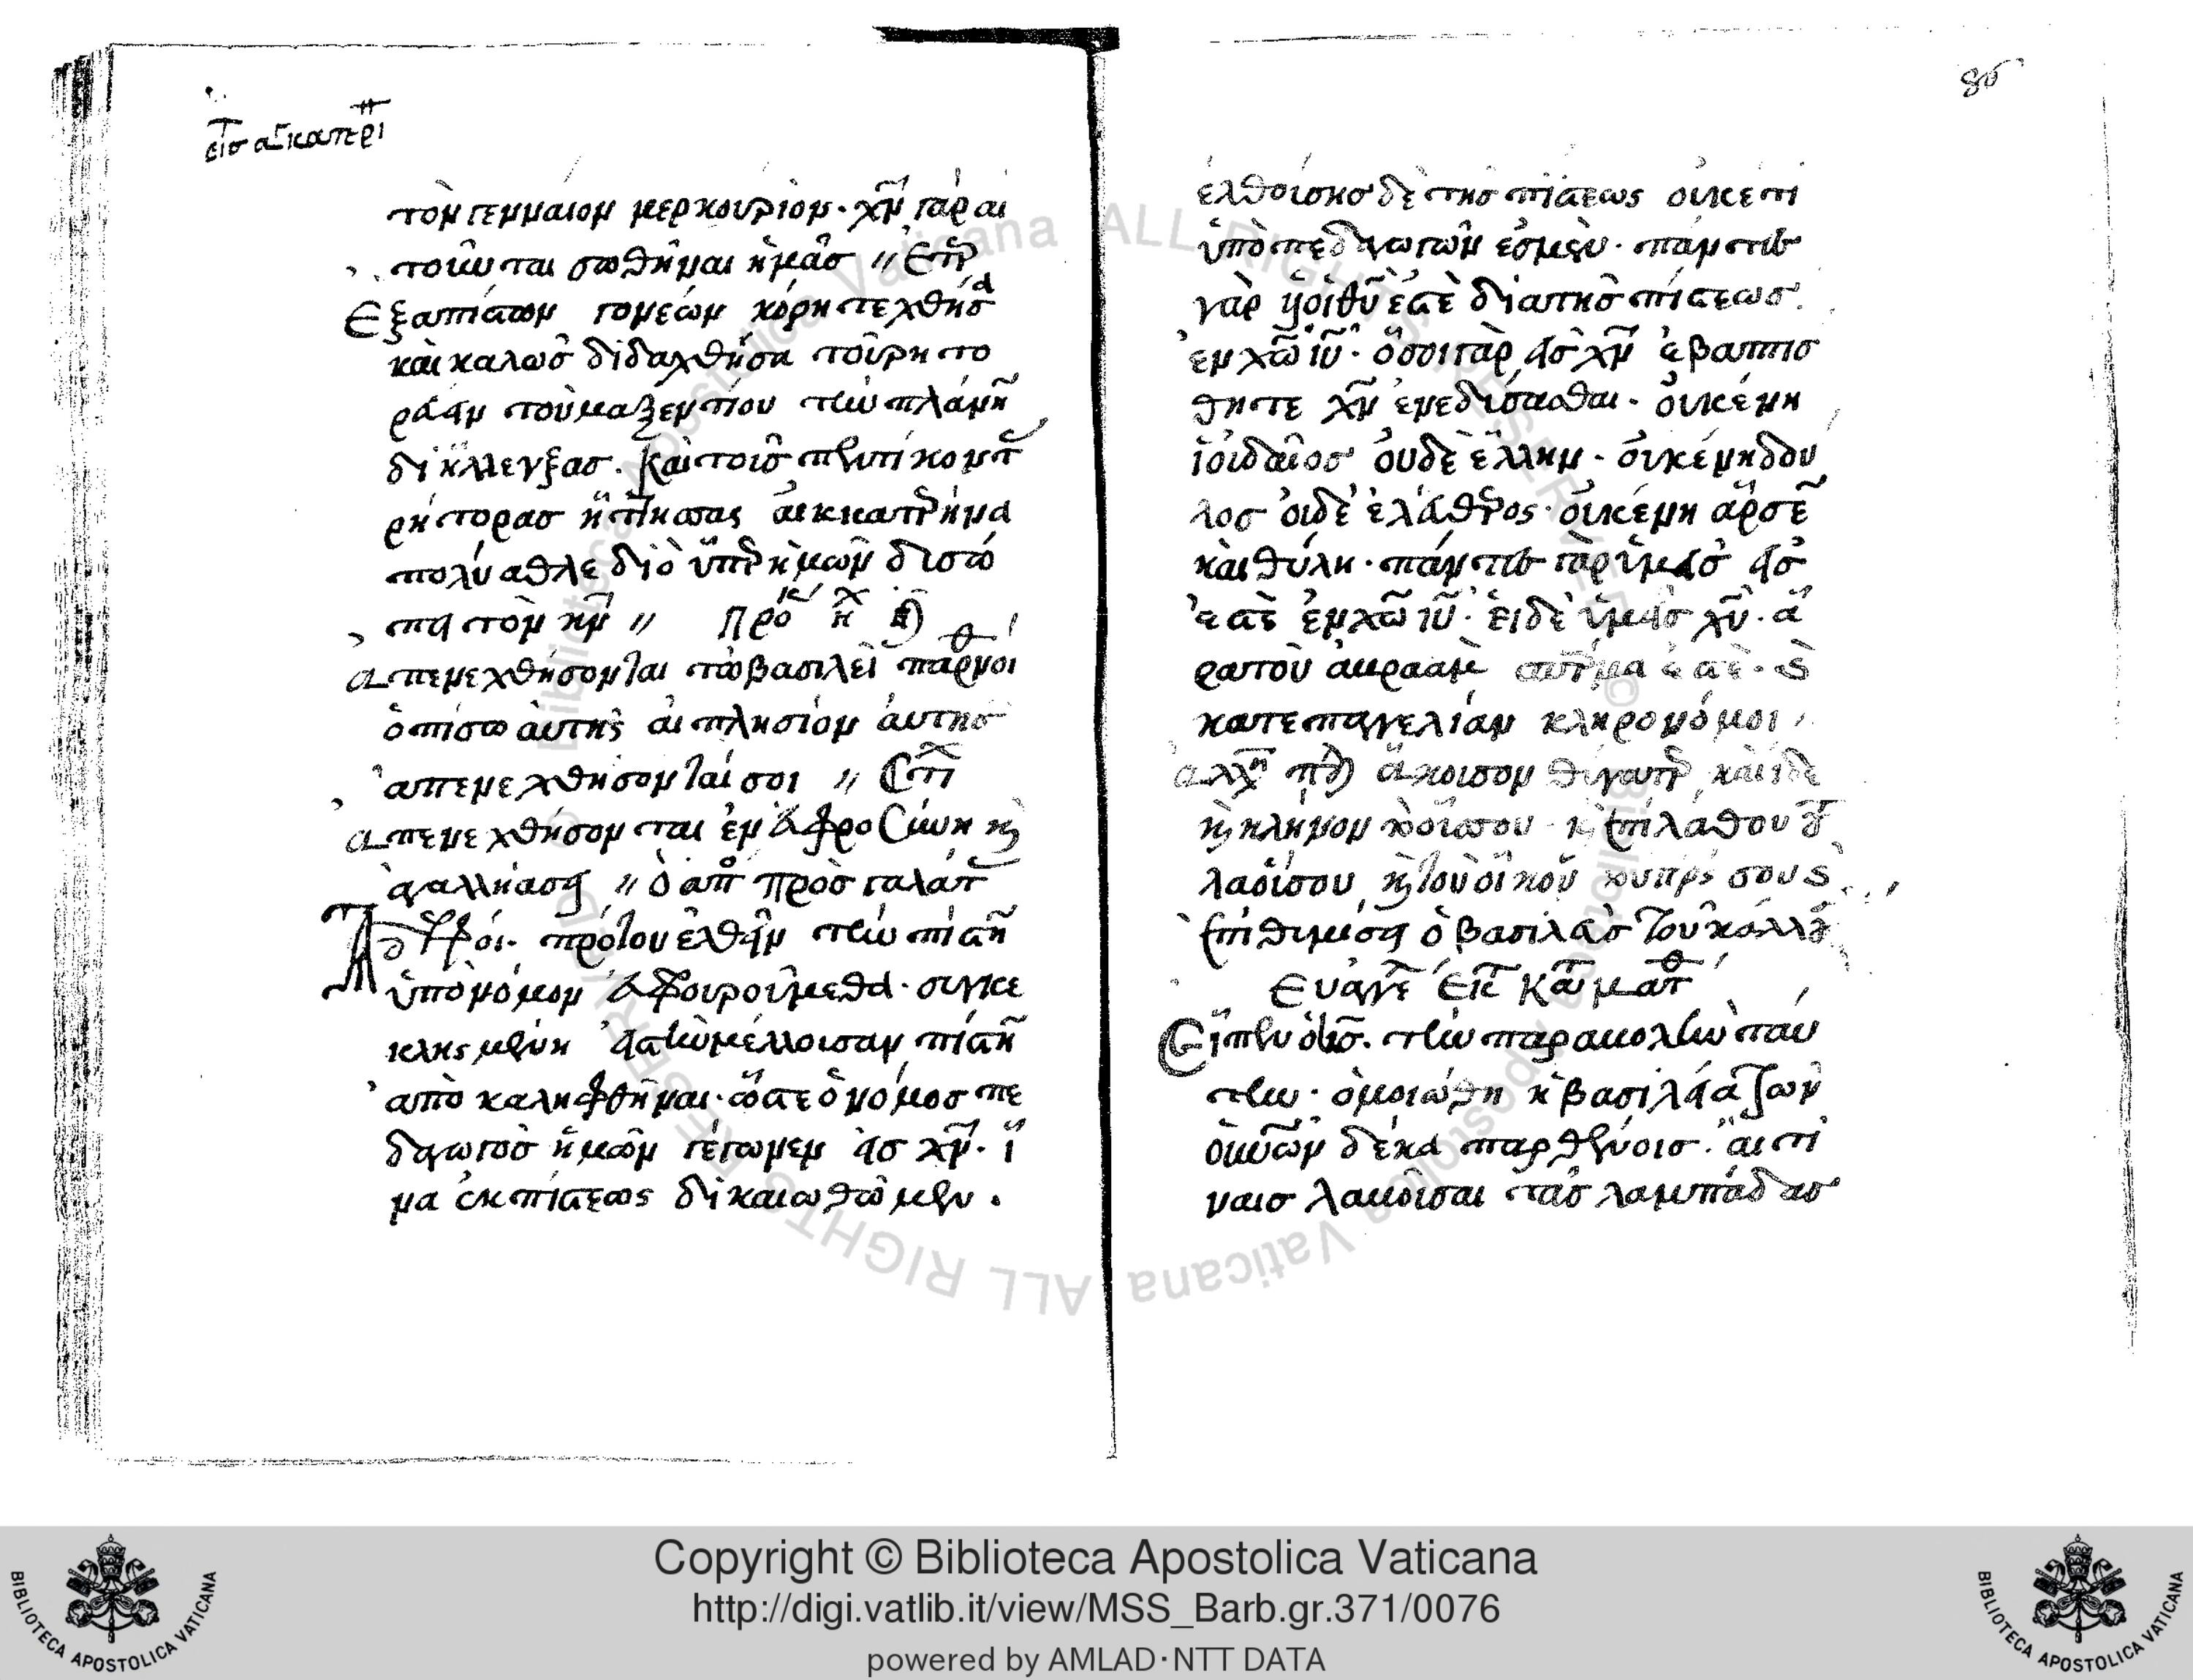 τὸν γενναῖον μερκούριον · χν̅ γὰρ αι
τοῦνται σωθῆναι ἡμᾶσ //
Εξαπίστων γονέων κόρη τεχθησα
καὶ καλωσ διδαχθησα τοῦρητο
ραὰν τοὺμαξεντίου τὴν πλάνη
διήλλεγξασ. καὶ τοισ πεντίκοντ
ρήτορασ ἥττηκασας αικκατρήνα
πολύαθλε διὸ ὑπὲρ ἡμῶν δισώ
πει τὸν κν̅ //
απενεχθήσονται τῶ βασιλεῖ παρθνοι
ὀπίσω ἀυτῆς αι πλησίον ἀυτησ
ἀπενεχθήσονται σοι //
απενεχθήσονται ἐν ἀφροσύνη κ
ἀγαλλιάσει // ὁ απ πρὸσ γαλατ
Αδελφοί. πρότου ἐλθεῖν τὴν πίστη
ὑπὸ νόμον ἀφρουρούμεθα · συγκε
κλησμένη εἰστὴν μέλλοισαν πίστη
ἀπὸ καληφθῆναι · ὥστε ὁ νόμοσ πε
δαγωγὸσ ἡμῶν γέγωνεν εἰσ χν̅ · ἵ
να ἐκ πίστεως δικαιωθῶμεν .
ἐλθοίσησ δὲ τησ πίστεως οὐκέτι
ὑπὸ πεδαγωγῶν ἐσμὲν · πάντεσ
γὰρ ὑοὶ θυ̅ ἐστὲ διατησ πίστεωσ .
ἐν χω̅ ιυ̅ · ὅσοι γὰρ εἰσ χν̅ ἐβαπτισ
θητε χν̅ ἐνεδίσασθαι · οὐκένη
ϊοιδαῖοσ ουδὲ ἕλλην · οὐκένη δου
λοσ οιδὲ ἐλεύθρος · οὐκένη ἄρσε
καὶ θύλη · πάντεσ γὰρ ὑμεῖσ εἰσ
ἐστὲ ἐν χω̅ ιυ̅ · ἐι δὲ ὑμεῖσ χυ̅ · ἄ
ρα τοὺ ἀυραὰμ σπερμα ἐστὲ · κ
κατεπαγγελίαν κληρονόμοι
ἄκοισον θύγατρ καὶ ἰδὲ
κ κλήνον τὸ οὖσσου κ ἐπιλάθου τ
λαοῖσου κ τοὺ οἴκου τουπρς σου κ
ἐπιθιμίσει ὁ βασιλεὺσ τοῦ κάλλ
Ευαγγε Εκ Κα ματθ
Εἶπεν ὁ κσ̅. τὴν παραυολὴν ταυ
την · ὁμοιώθη ἡ βασιλεία τῶν
οὐνῶν δέκα παρθένοισ · ἅιτι
ναισ λαυοῖσαι τὰσ λαμπάδασ
Copyright © Biblioteca Apostolica Vaticana
http://digi.vatlib.it/view/MSS_Barb.gr.371/0076
powered by AMLAD·NTT DATA
BIBLIOTECA APOSTOLICA VATICANA
BIBLIOTECA APOSTOLICA VATICANA